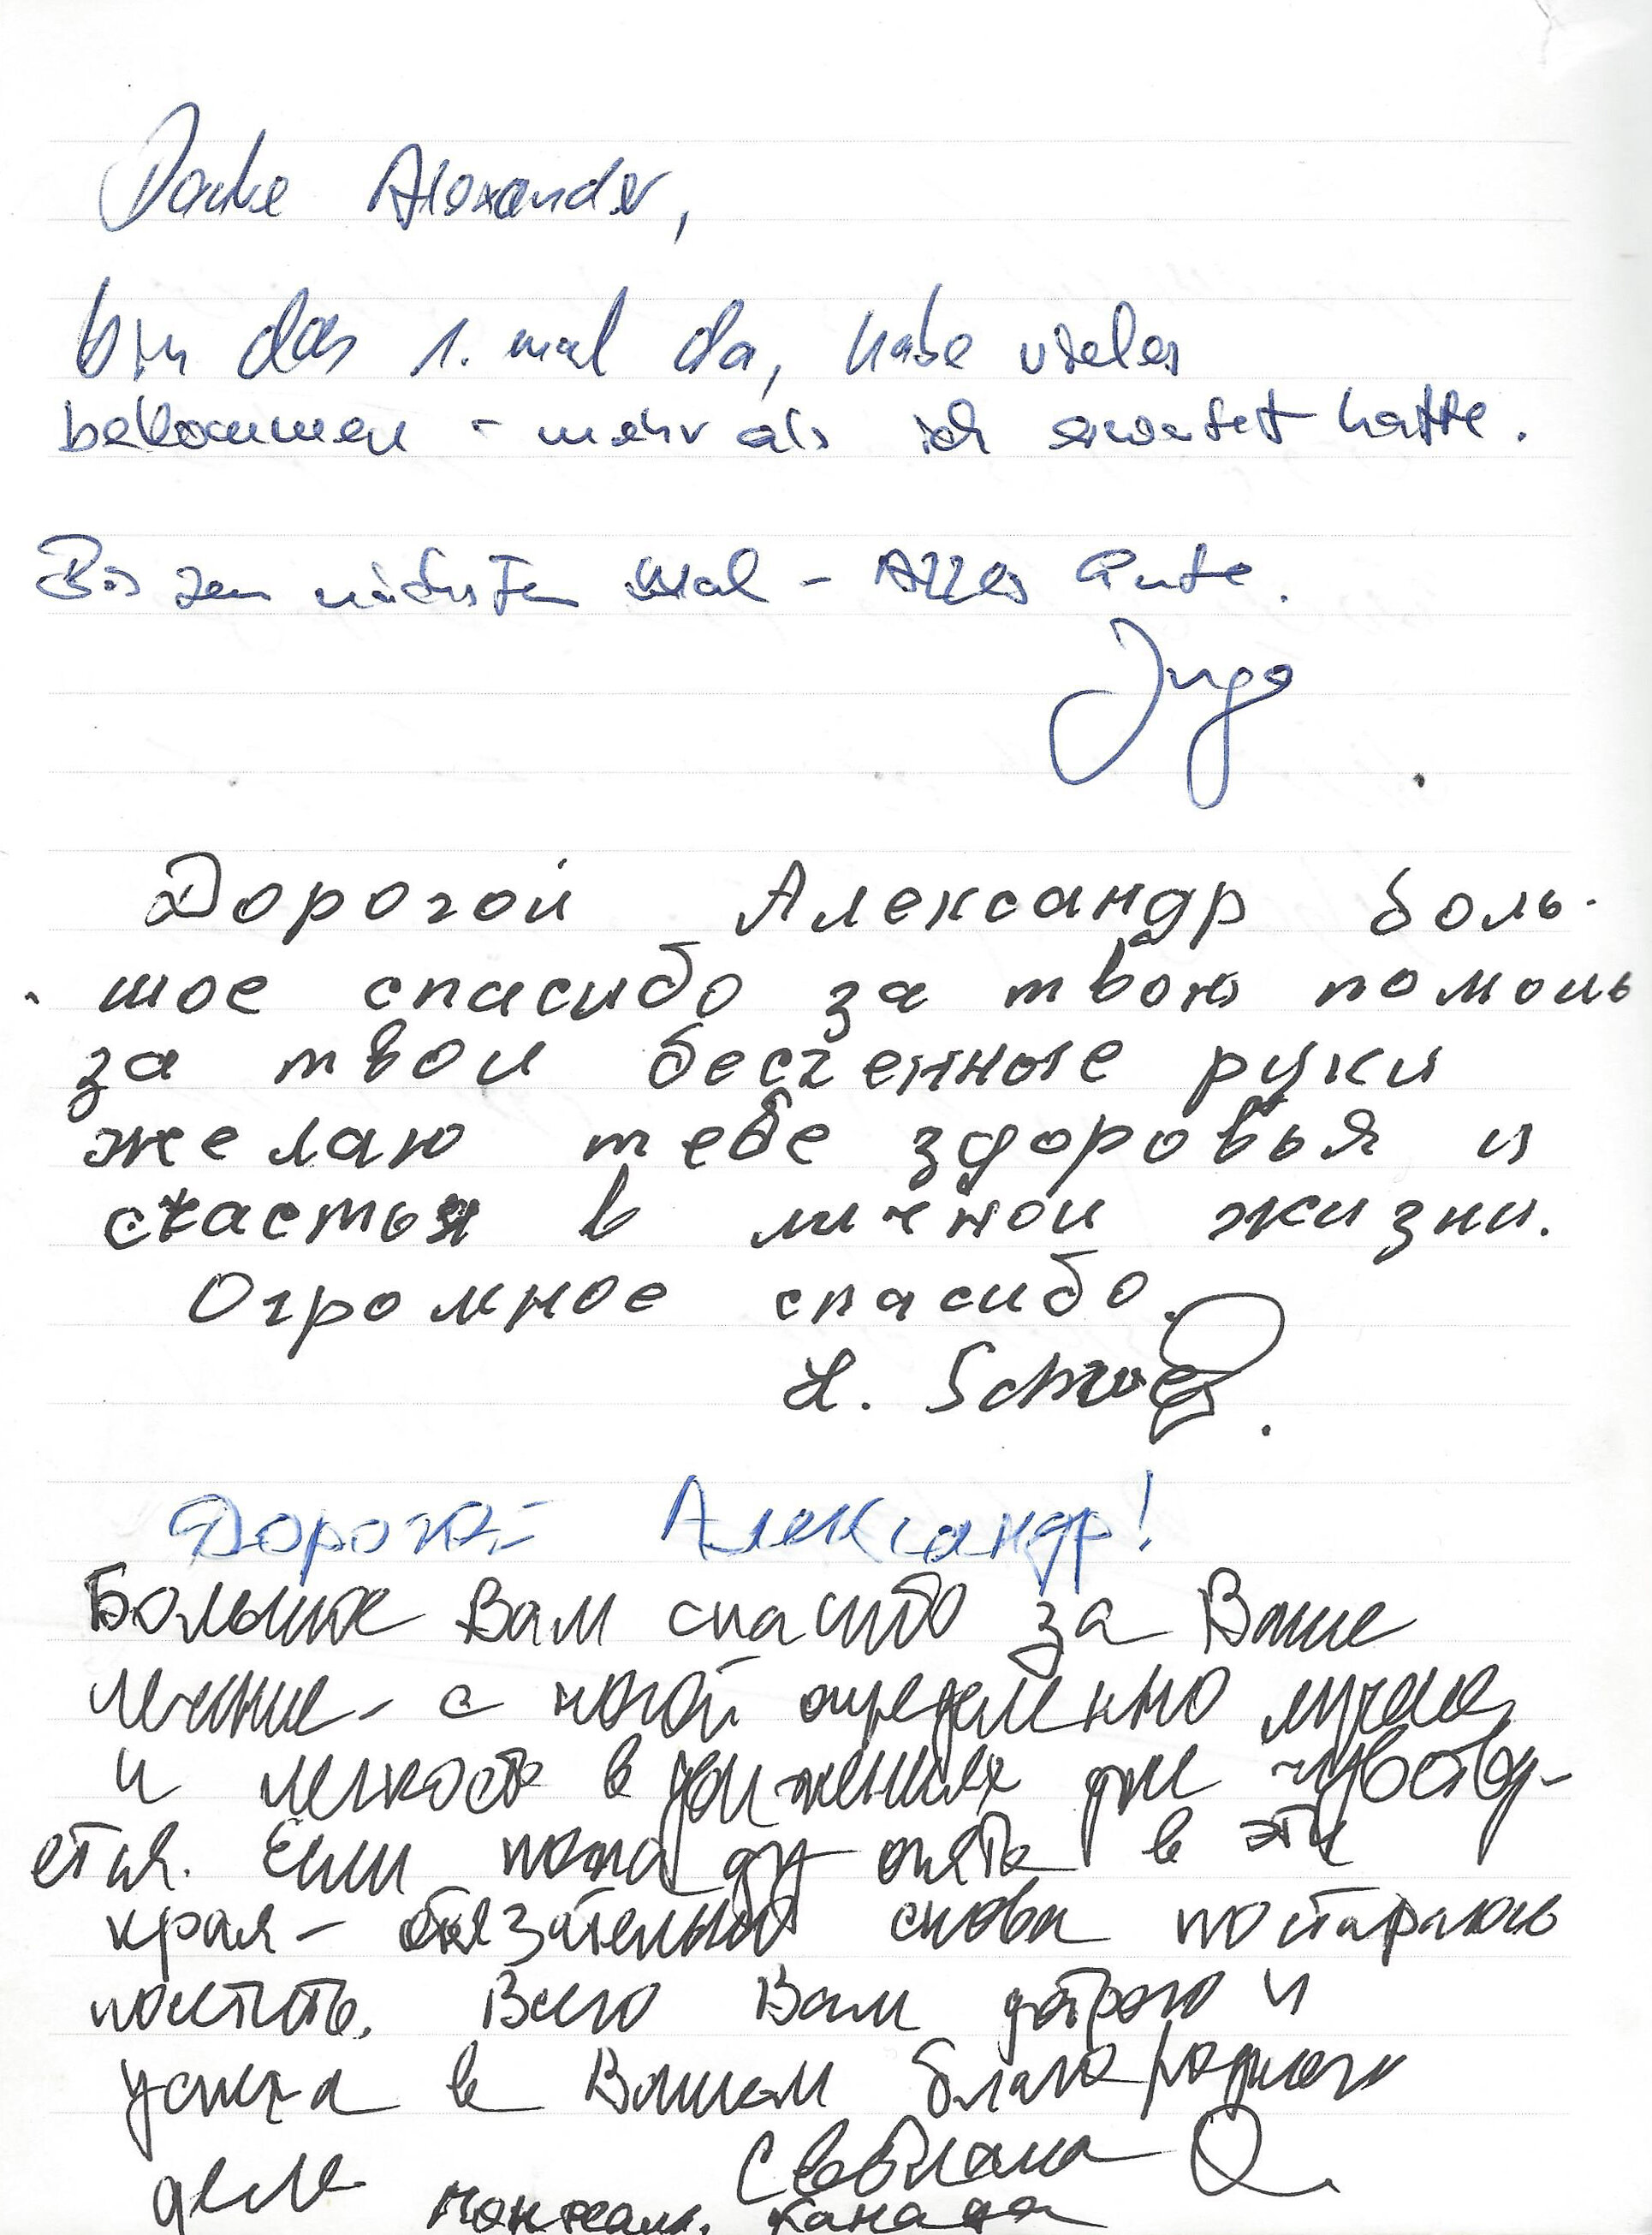 Danke Alexander,
bin das 1. mal da, habe vieles
bekommen - mehr als ich erwartet hatte.
Bis zum nächsten Mal - Alles Gute.
Ingo
Дорогой Александр боль-
шое спасибо за твою помошь
за твои бесценные руки
желаю тебе здоровья и
счастья в личной жизни.
Огромное спасибо.
Дорогой Александр!
Большое Вам спасибо за Ваше
лечение - с ногой определенно лучше,
и легкость в движениях уже чувству-
ется. Если попаду опять в эти
края - обязательно снова постараюсь
посетить. Всего Вам доброго и
успеха в Вашем благородном
деле Светлана
Монреаль, Канада